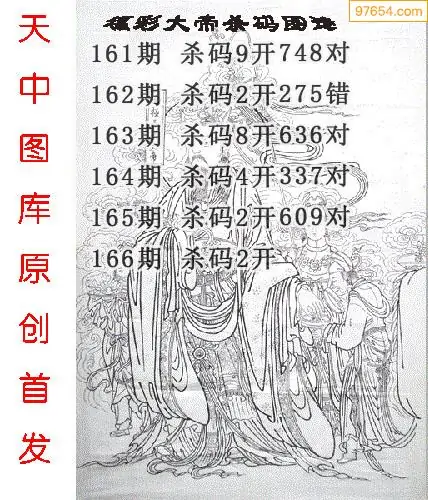 97654.com
福彩大帝杀码图迷
161期 杀码9开748对
162期 杀码2开275错
163期 杀码8开636对
164期 杀码4开337对
165期 杀码2开609对
166期 杀码2开
天中图库原创首发